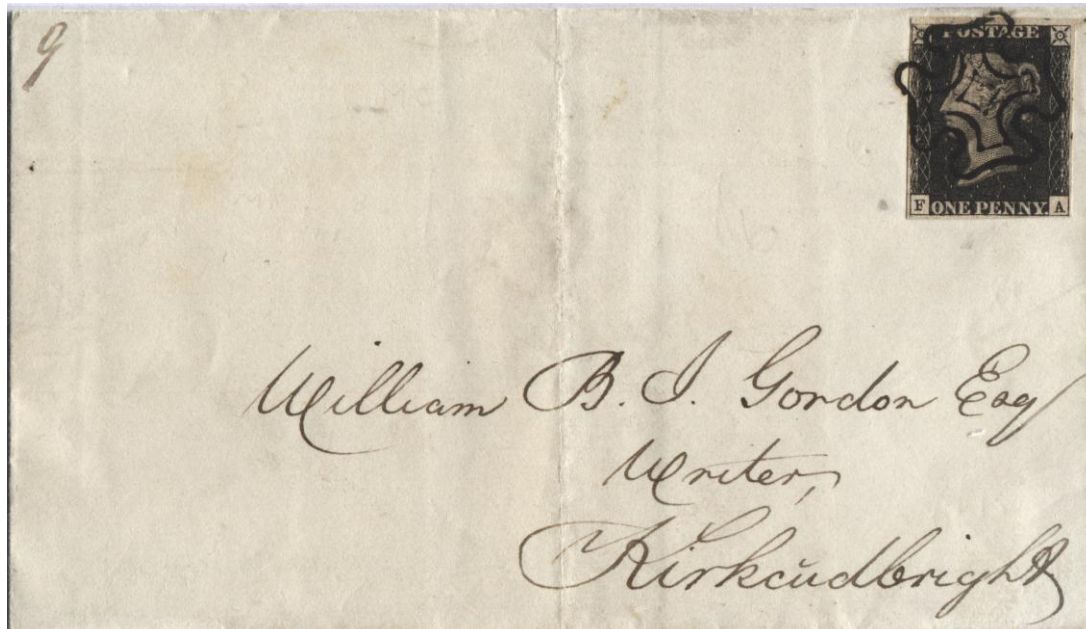 9
POSTAGE
F ONE PENNY. A
William B. I. Gordon Esq
Writer,
Kirkcudbright